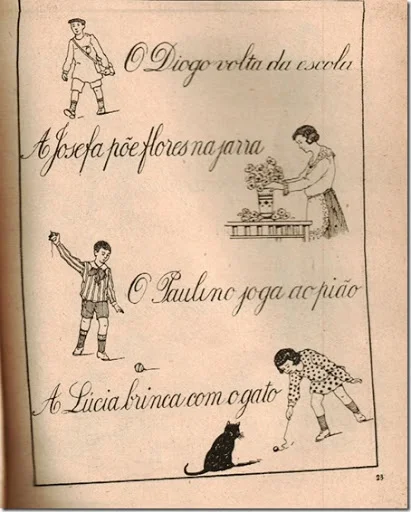 O Diogo volta da escola
A Josefa põe flores na jarra
O Paulino joga ao pião
A Lúcia brinca com o gato
25